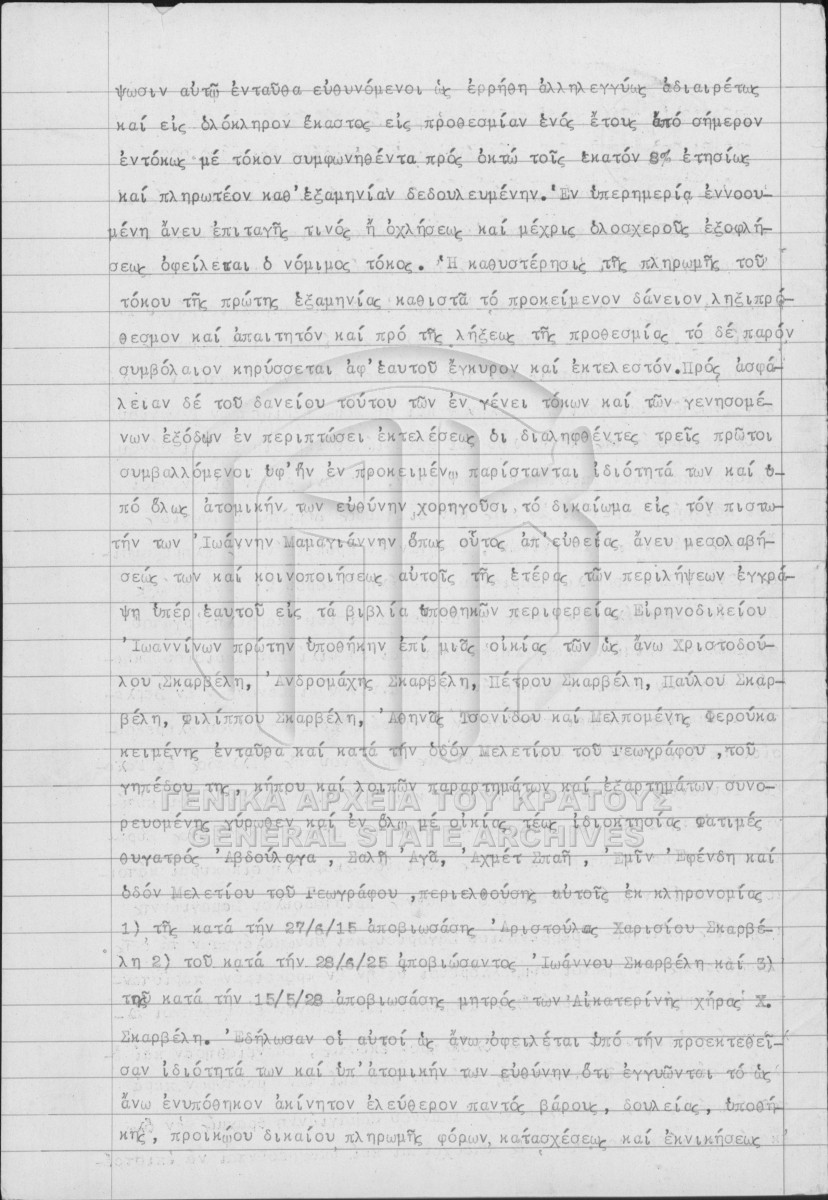 ψωσιν αὐτῷ ἐνταῦθα εὐθυνόμενοι ὡς ἐρρήθη ἀλληλεγγύως ἀδιαιρέτως
καί εἰς ὁλόκληρον ἕκαστος εἰς προθεσμίαν ἑνός ἔτους ἀπό σήμερον
ἐντόκως μέ τόκον συμφωνηθέντα πρός ὀκτώ τοῖς ἑκατόν 8% ἐτησίως
καί πληρωτέον καθ'ἑξαμηνίαν δεδουλευμένην. Ἐν ὑπερημερίᾳ ἐννοου-
μένη ἄνευ ἐπιταγῆς τινός ἤ ὀχλήσεως καί μέχρις ὁλοσχεροῦς ἐξοφλή-
σεως ὀφείλεται ὁ νόμιμος τόκος. Ἡ καθυστέρησις τῆς πληρωμῆς τοῦ
τόκου τῆς πρώτης ἑξαμηνίας καθιστᾶ τό προκείμενον δάνειον ληξιπρό-
θεσμον καί ἀπαιτητόν καί πρό τῆς λήξεως τῆς προθεσμίας τό δέ παρόν
συμβόλαιον κηρύσσεται ἀφ'ἑαυτοῦ ἔγκυρον καί ἐκτελεστόν.Πρός ἀσφά-
λειαν δέ τοῦ δανείου τούτου τῶν ἐν γένει τόκων καί τῶν γενησομέ-
νων ἐξόδων ἐν περιπτώσει ἐκτελέσεως οἱ διαληφθέντες τρεῖς πρῶτοι
συμβαλλόμενοι ὑφ'ἥν ἐν προκειμένῳ παρίστανται ἰδιότητά των καί ὑ-
πό ὅλως ἀτομικήν των εὐθύνην χορηγοῦσι τό δικαίωμα εἰς τόν πιστω-
τήν των Ἰωάννην Μαμαγιάννην ὅπως οὗτος ἀπ'εὐθείας ἄνευ μεσολαβή-
σεώς των καί κοινοποιήσεως αὐτοῖς τῆς ἑτέρας τῶν περιλήψεων ἐγγρά-
ψη ὑπέρ ἑαυτοῦ εἰς τά βιβλία ὑποθηκῶν περιφερείας Εἰρηνοδικείου
Ἰωαννίνων πρώτην ὑποθήκην ἐπί μιᾶς οἰκίας τῶν ὡς ἄνω Χριστοδού-
λου Σκαρβέλη, Ἀνδρομάχης Σκαρβέλη, Πέτρου Σκαρβέλη, Παύλου Σκαρ-
βέλη, Φιλίππου Σκαρβέλη, Ἀθηνᾶς Τσονίδου καί Μελπομένης Φερούκα
κειμένης ἐνταῦθα καί κατά τήν ὁδόν Μελετίου τοῦ Γεωγράφου ,τοῦ
γηπέδου της, κήπου καί λοιπῶν παραρτημάτων καί ἐξαρτημάτων συνο-
ΓΕΝΙΚΑ ΑΡΧΕΙΑ ΤΟΥ ΚΡΑΤΟΥΣ
ρευομένης γύρωθεν καί ἐν ὅλῳ μέ οἰκίας τέως ἰδιοκτησίας Φατιμές
GENERAL STATE ARCHIVES
θυγατρός Ἀβδούλαγα , Σαλῆ Ἀγᾶ, Ἀχμέτ Σπαῆ , Ἐμίν Ἐφένδη καί
ὁδόν Μελετίου τοῦ Γεωγράφου ,περιελθούσης αὐτοῖς ἐκ κληρονομίας
1) τῆς κατά τήν 27/6/15 ἀποβιωσάσης Ἀριστούλας Χαρισίου Σκαρβέ-
λη 2) τοῦ κατά τήν 28/6/25 ἀποβιώσαντος Ἰωάννου Σκαρβέλη καί 3)
τῆς κατά τήν 15/5/28 ἀποβιωσάσης μητρός των Αἰκατερίνης χήρας Χ.
Σκαρβέλη. Ἐδήλωσαν οἱ αὐτοί ὡς ἄνω ὀφειλέται ὑπό τήν προεκτεθεῖ-
σαν ἰδιότητά των καί ὑπ'ἀτομικήν των εὐθύνην ὅτι ἐγγυῶνται τό ὡς
ἄνω ἐνυπόθηκον ἀκίνητον ἐλεύθερον παντός βάρους, δουλείας, ὑποθή-
κης, προικώου δικαίου πληρωμῆς φόρων, κατασχέσεως καί ἐκνικήσεως